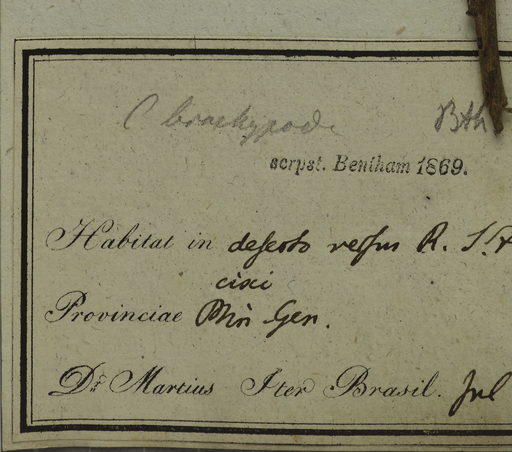 C brachypoda Bth
scrpst. Bentham 1869.
Habitat in deserto versus R. S. F
cisci
Provinciae Min Gen.
Dr. Martius Iter Brasil. Jul